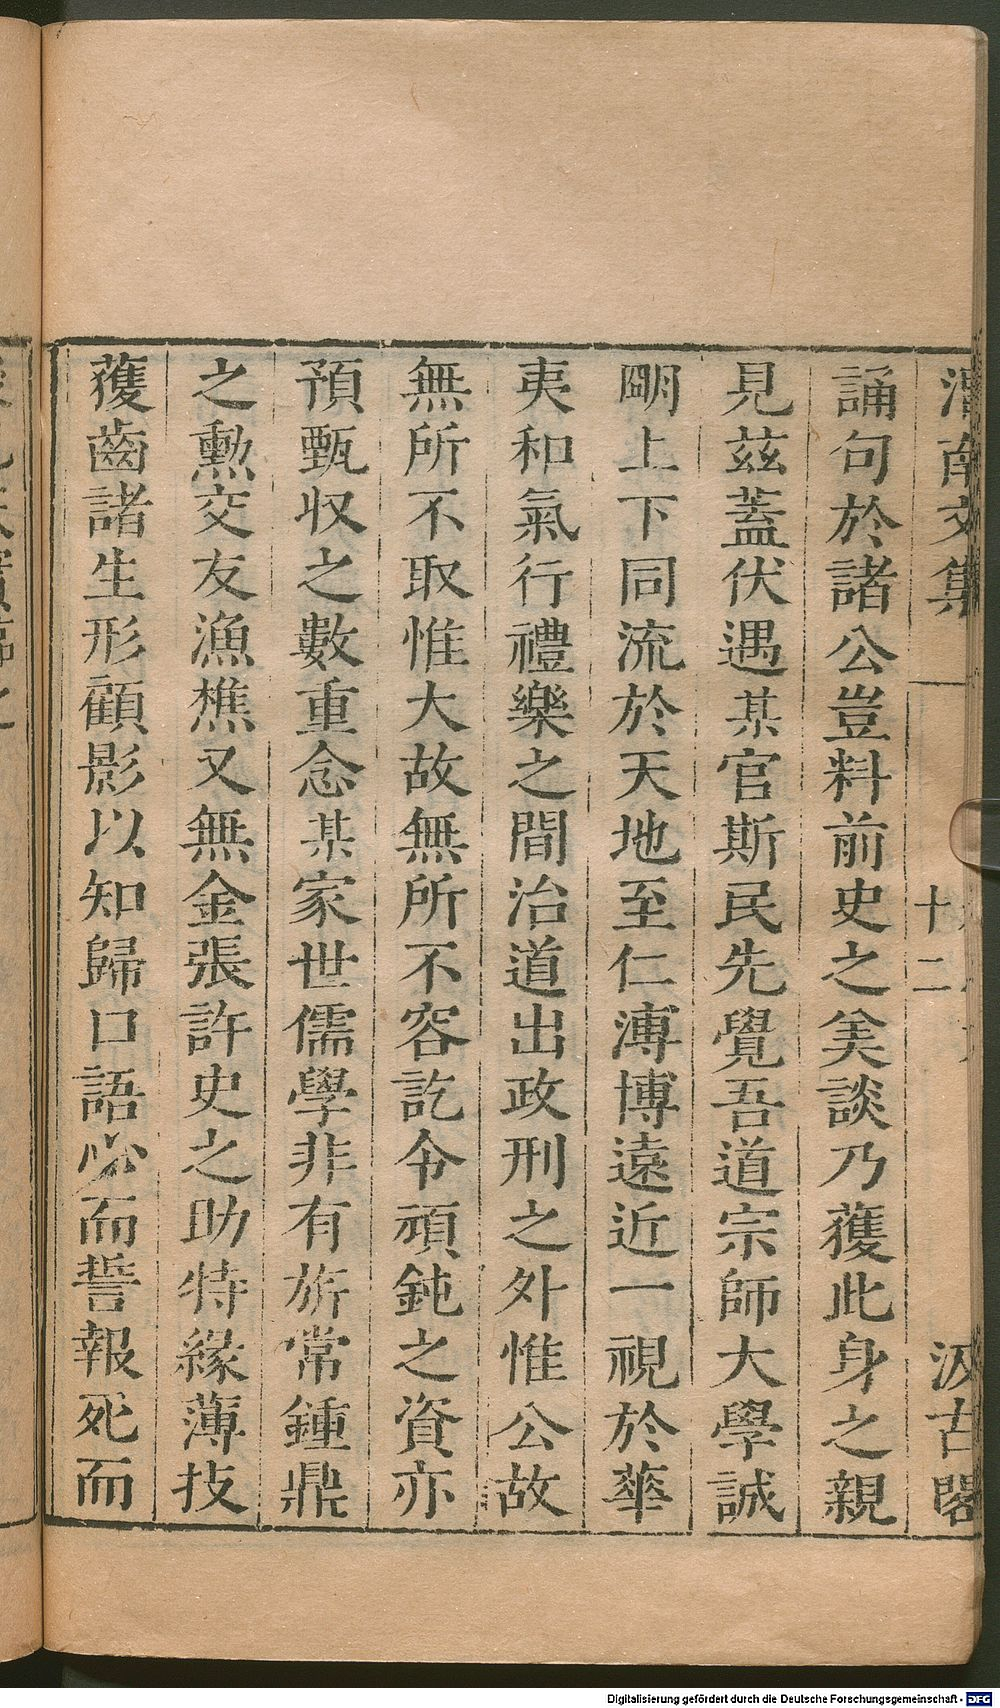 渭南文集
十二
汲古閣
誦句於諸公豈料前史之美談乃獲此身之親
見茲蓋伏遇某官斯民先覺吾道宗師大學誠
明上下同流於天地至仁溥博遠近一視於華
夷和氣行禮樂之間治道出政刑之外惟公故
無所不取惟大故無所不容訖令頑鈍之資亦
預甄収之數重念某家世儒學非有旂常鍾鼎
之勲交友漁樵又無金張許史之助特緣薄技
獲齒諸生形顧影以知歸口語心而誓報死而